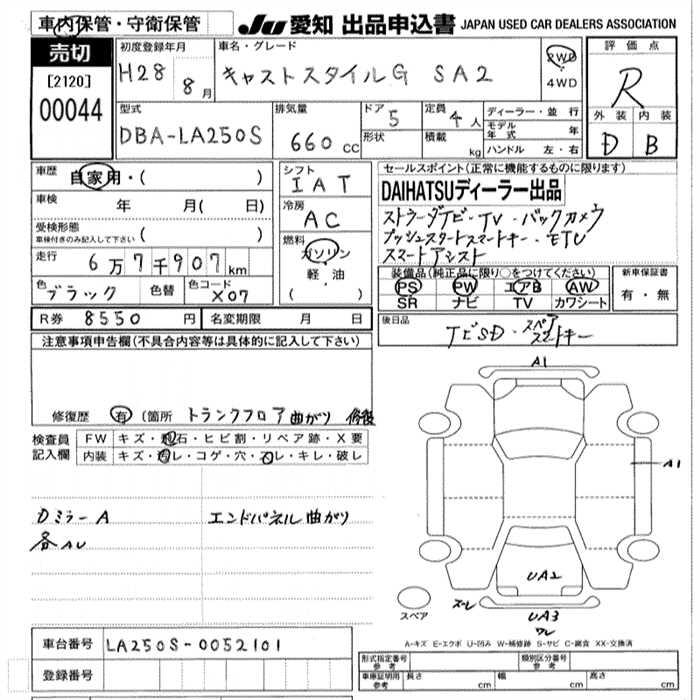 車内保管・守衛保管
JU 愛知 出品申込書 JAPAN USED CAR DEALERS ASSOCIATION
売切
[2120]
00044
初度登録年月
H28 8月
車名・グレード
キャストスタイルG SA2
2WD
4WD
評価点
R
外装 内装
D B
型式
DBA-LA250S
排気量
660 cc
ドア 5
形状
定員 4人
積載 kg
ディーラー・並行
モデル年式 年
ハンドル 左・右
車歴 自家用・( )
車検 年 月( 日)
受検形態
車検付きのみ記入して下さい ( )
走行 6万7千907km
色 ブラック 色替 色コード X07
シフト
IAT
冷房
AC
燃料
ガソリン
・
軽・油
( )
セールスポイント(正常に機能するものに限ります)
DAIHATSUディーラー出品
ストラーダナビ・TV・バックカメラ
プッシュスタートスマートキー・ETC
スマートアシスト
装備品(純正品に限り○をつけてください)
PS PW エアB AW
SR ナビ TV カワシート
新車保証書
有・無
R券 8550 円 名変期限 月 日
後日品
スペア
スマートキー
注意事項申告欄(不具合内容等は具体的に記入して下さい)
修復歴 有 (箇所 トランクフロア曲がり 修復
検査員
記入欄
FW キズ・飛石・ヒビ割・リペア跡・X要
内装 キズ・汚レ・コゲ・穴・スレ・キレ・破レ
Dミラー A
各AU
エンドパネル曲がり
A1
A1
UA2
スレ
UA3
ワレ
スペア
A-キズ E-エクボ U-凹み W-補修跡 S-サビ C-腐食 XX-交換済
車台番号 LA250S-0052101
登録番号
形式指定番号 参考
類別区分番号 参考
車庫証明用 参考 長さ 幅 高さ